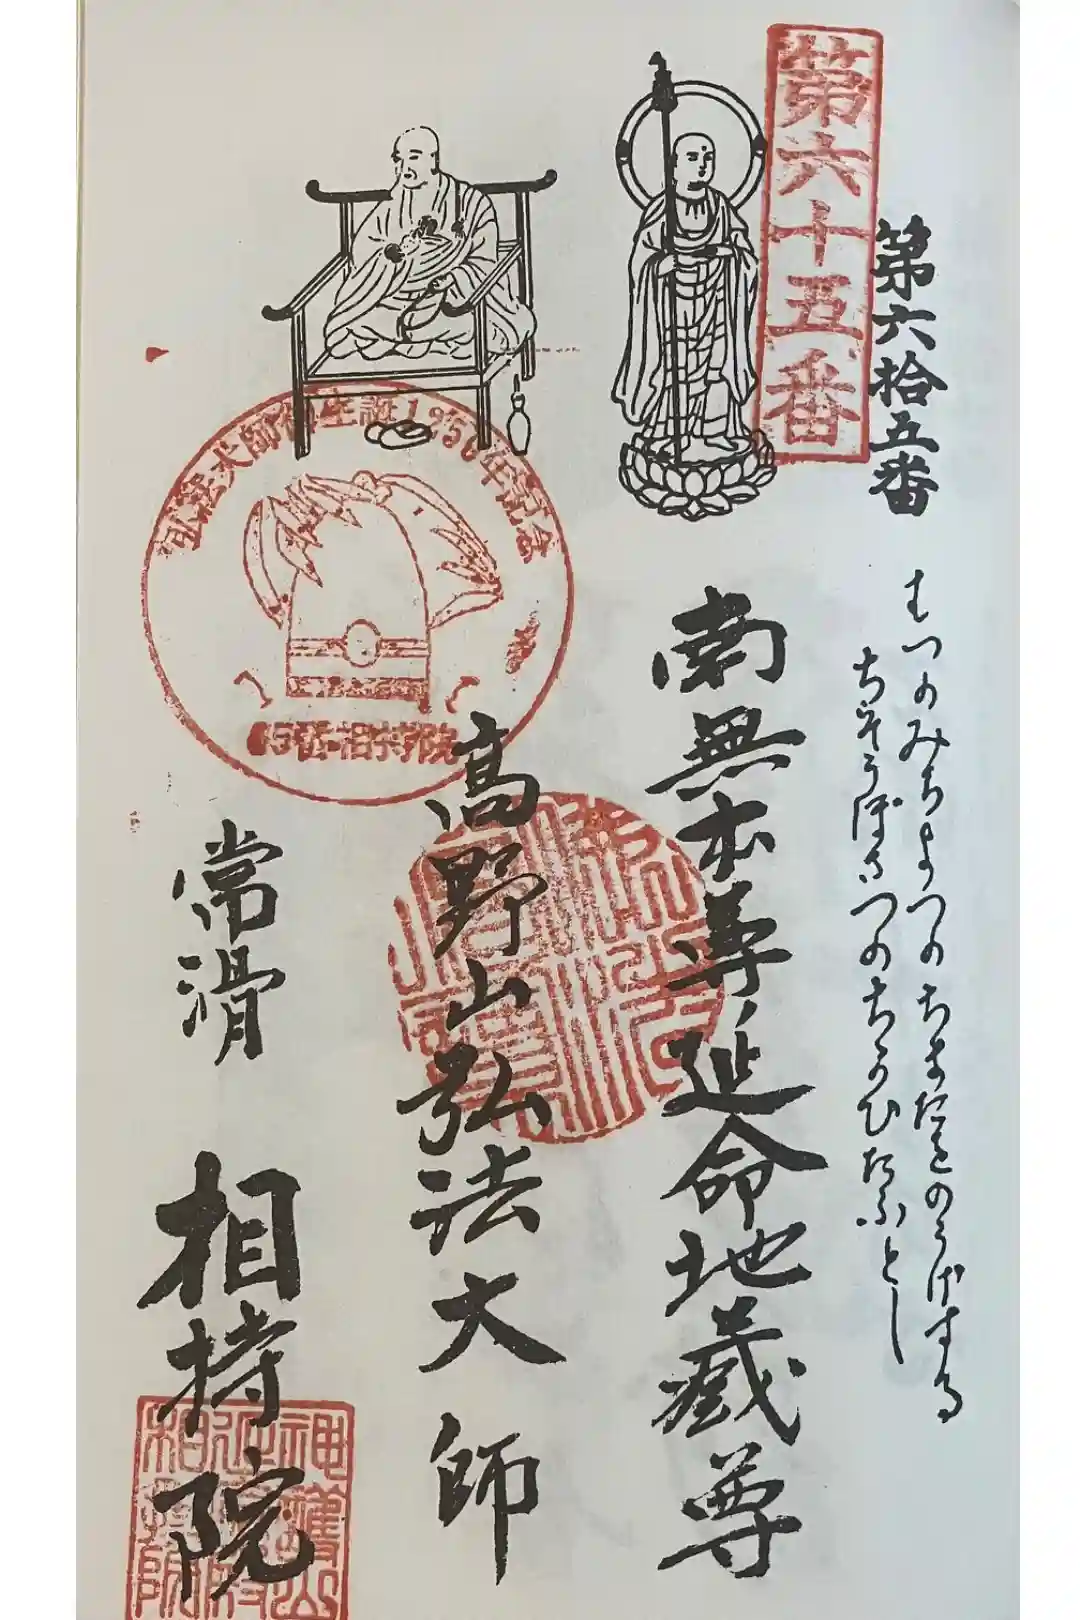 第六十五番
第六拾五番
むつのみちよつのちまたをのうげする
ぢぞうぼさつのちかひたふとし
南無本尊延命地蔵尊
高野山弘法大師
弘法大師御生誕1250年記念
65番 相持院
常滑 相持院